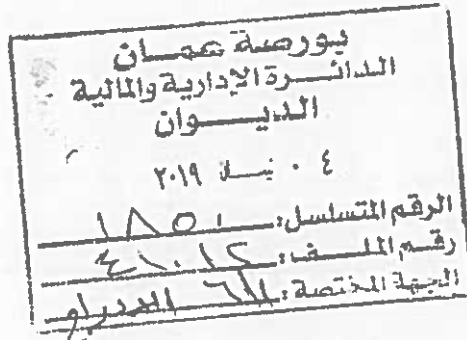 بورصة عمان
الدائرة الإدارية والمالية
الديوان
٠٤ نيسان ٢٠١٩
الرقم المتسلسل: ١٨٥١
رقم الملف: ٤١٠١٢
الجهة المختصة: